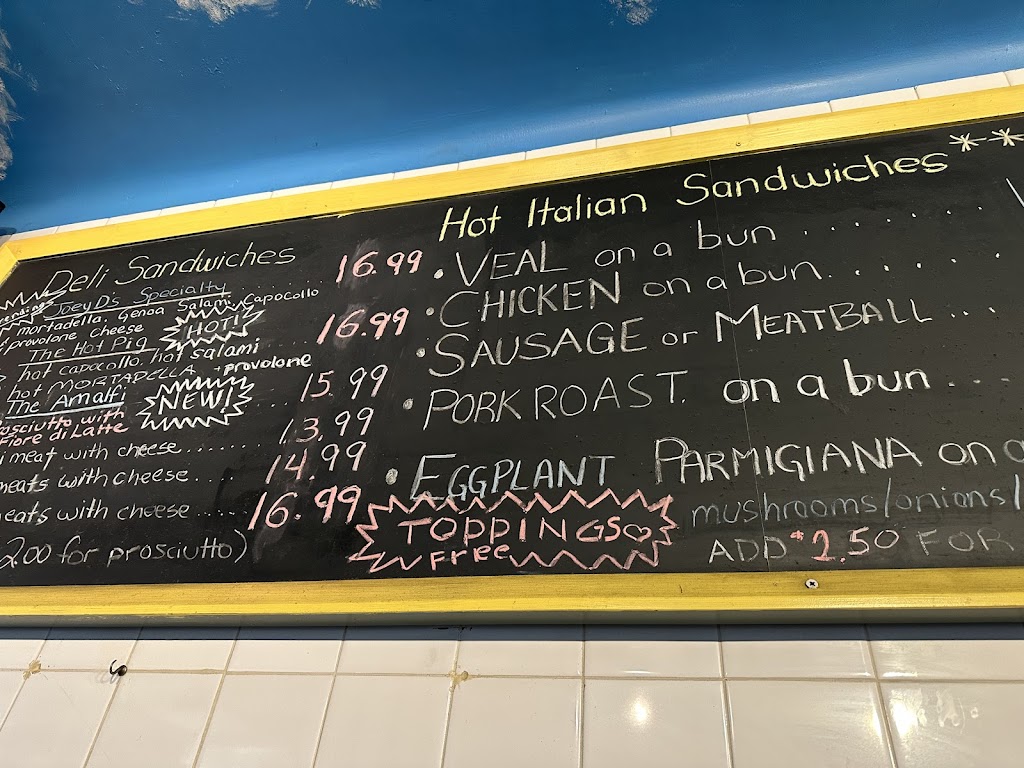 Deli Sandwiches
JoeyD's Specialty ..... 16.99
mortadella, Genoa Salami, Capocollo
provolone cheese
HOT!
The Hot Pig ..... 16.99
hot capacollo, hot salami
hot MORTADELLA + provolone
The Amalfi NEW! ..... 15.99
prosciutto with
Fiore di Latte
meat with cheese ..... 13.99
meats with cheese .... 14.99
meats with cheese ..... 16.99
2.00 for prosciutto)
Hot Italian Sandwiches **
• VEAL on a bun ......
• CHICKEN on a bun. ......
• SAUSAGE or MEATBALL ...
• PORK ROAST. on a bun ....
• EGGPLANT PARMIGIANA on a
TOPPINGS♡
FREE
mushrooms/onions/
ADD $2.50 FOR